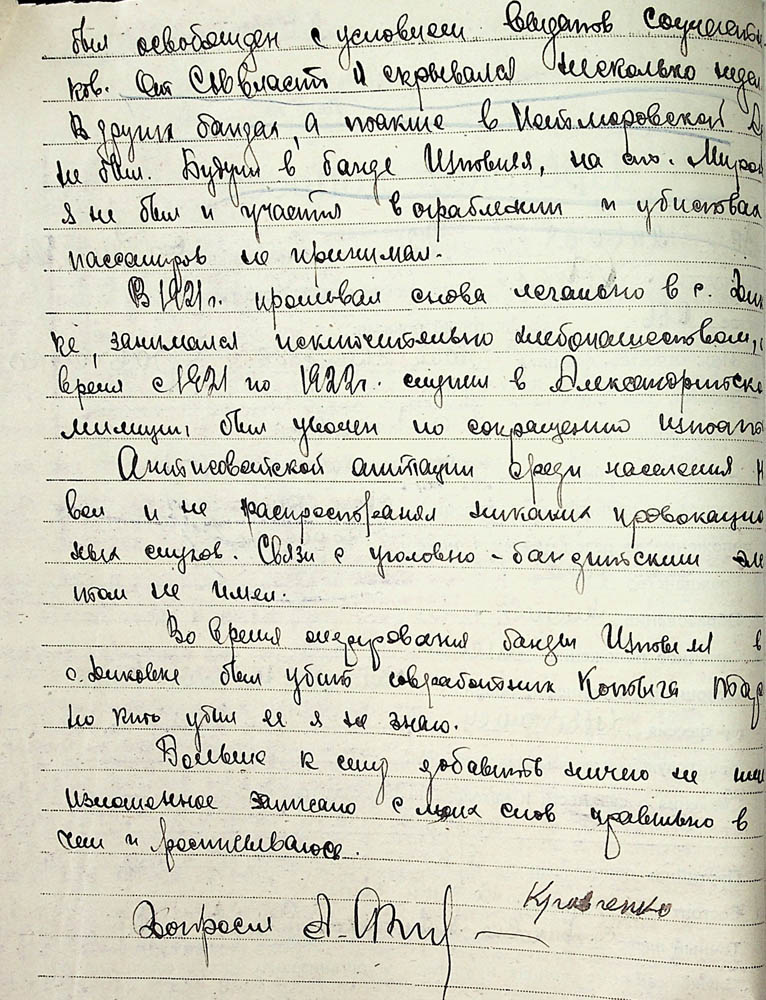 был освобожден с условием выдачов соучастни
ков. От Соввласти я скрывался несколько недел
В других бандах, а также в Хетмаровской
не был. Будучи в банде Изповеля, на ст.
я не был и участия в ограблении и убиствах
пассажиров не принимал.
В 1921 г. проживал снова легально в с. Дик
ке, занимался исключительно хлебопашеством,
время с 1921 по 1922 г. служил в Александрийск
милиции, был уволен по сокращению штата
Антисоветской агитации среди населения н
вел и не распространял никаких провокацио
ных слухов. Связи с уголовно-бандитским эле
нтом не имел.
Во время оперирования банды в
с. Диковке был убит совработник
но кто убил ее я не знаю.
Больше к сему добавить ничего не
изложенное записано с моих слов правильно в
чем и расписываюсь.
Кравченко
Допросил